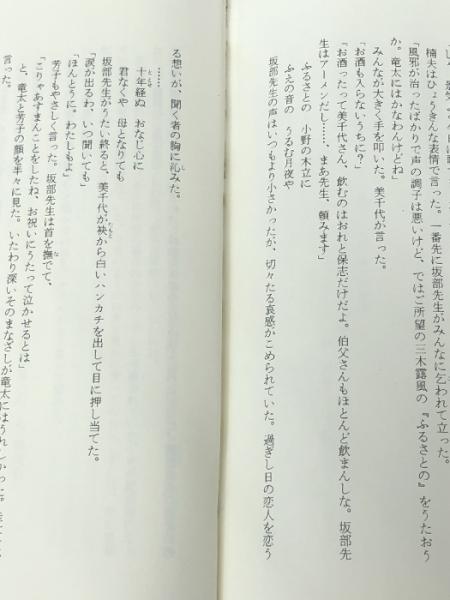 楠夫はひょうきんな表情で言った。一番先に坂部先生がみんなに乞われて立った。
「風邪が治ったばかりで声の調子は悪いけど、ではご所望の三木露風の『ふるさとの』をうたおう
か。竜太にはかなわんけどね」
みんなが大きく手を叩いた。美千代が言った。
「お酒も入らないうちに？」
「お酒ったって美千代さん、飲むのはおれと保志だけだよ。伯父さんもほとんど飲まんしな。坂部先
生はアーメンだし……まあ先生、頼みます」
ふるさとの　小野の木立に
ふえの音の　うるむ月夜や
坂部先生の声はいつもより小さかったが、切々たる哀感がこめられていた。過ぎし日の恋人を恋う
る想いが、聞く者の胸に沁みた。
…………
十年経ぬ　おなじ心に
君なくや　母となりても
坂部先生がうたい終ると、美千代が袂から白いハンカチを出して目に押し当てた。
「涙が出るわ、いつ聞いても」
「ほんとうに。わたしもよ」
芳子もやさしく言った。坂部先生は首を撫でて、
「こりゃあすまんことをしたね、お祝いにうたって泣かせるとは」
と、竜太と芳子の顔を半々に見た。いたわり深いそのまなざしが竜太にはうれしかった。
言った。